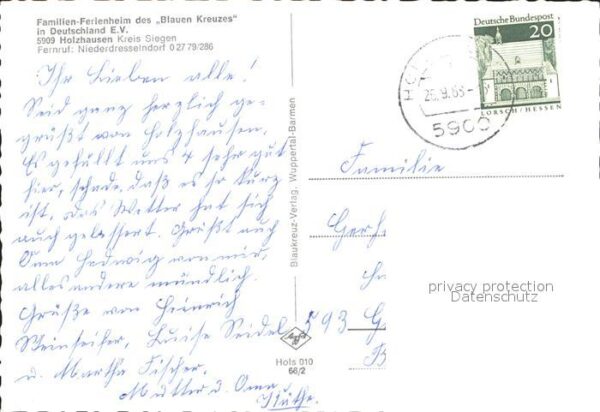 Familien-Ferienheim des „Blauen Kreuzes"
in Deutschland E.V.
5909 Holzhausen Kreis Siegen
Fernruf: Niederdresselndorf 0 27 79/286
Ihr Lieben alle!
Seid ganz herzlich ge-
grüßt von Holzhausen.
Es gefällt uns 4 sehr gut
hier, schade, daß es so kurz
ist, das Wetter hat sich
auch gebessert. Grüßt auch
Oma Hedwig von mir,
alles andere mündlich.
Grüße von Heinrich
Weinseifer, Luise Seidel
u. Martha Fischer.
Mutter u. Oma
Blaukreuz-Verlag, Wuppertal-Barmen
Hols 010
66/2
Deutsche Bundespost
20
LORSCH/HESSEN
HOL
5909
Familie
Gerh.
593 G
privacy protection
Datenschutz